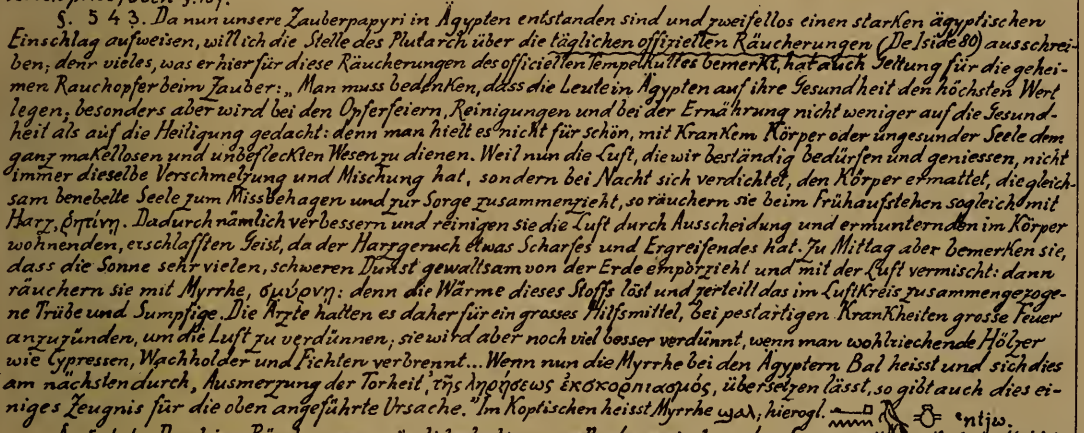 §. 543. Da nun unsere Zauberpapyri in Ägypten entstanden sind und zweifellos einen starken ägyptischen
Einschlag aufweisen, will ich die Stelle des Plutarch über die täglichen offiziellen Räucherungen (De Iside 80) ausschrei-
ben; denn vieles, was er hier für diese Räucherungen des officiellen Tempelkultes bemerkt, hat auch Geltung für die gehei-
men Rauchopfer beim Zauber: „Man muss bedenken, dass die Leute in Ägypten auf ihre Gesundheit den höchsten Wert
legen, besonders aber wird bei den Opferfeiern, Reinigungen und bei der Ernährung nicht weniger auf die Gesund-
heit als auf die Heiligung gedacht: denn man hielt es nicht für schön, mit krankem Körper oder ungesunder Seele dem
ganz makellosen und unbefleckten Wesen zu dienen. Weil nun die Luft, die wir beständig bedürfen und geniessen, nicht
immer dieselbe Verschmelzung und Mischung hat, sondern bei Nacht sich verdichtet, den Körper ermattet, die gleich-
sam benebelte Seele zum Missbehagen und zur Sorge zusammenzieht, so räuchern sie beim Frühaufstehen sogleich mit
Harz, ῥητίνη. Dadurch nämlich verbessern und reinigen sie die Luft durch Ausscheidung und ermuntern den im Körper
wohnenden, erschlafften Geist, da der Harzgeruch etwas Scharfes und Ergreifendes hat. Zu Mittag aber bemerken sie,
dass die Sonne sehr vielen, schweren Dunst gewaltsam von der Erde emporzieht und mit der Luft vermischt: dann
räuchern sie mit Myrrhe, σμύρνη: denn die Wärme dieses Stoffs löst und zerteilt das im Luftkreis zusammengezoge-
ne Trübe und Sumpfige. Die Ärzte halten es daher für ein grosses Hilfsmittel, bei pestartigen Krankheiten grosse Feuer
anzuzünden, um die Luft zu verdünnen; sie wird aber noch viel besser verdünnt, wenn man wohlriechende Hölzer
wie Cypressen, Wachholder und Fichten verbrennt... Wenn nun die Myrrhe bei den Ägyptern Bal heisst und sich dies
am nächsten durch „Ausmerzung der Torheit", τῆς ληρήσεως ἐκσκορπιασμός, übersetzen lässt, so gibt auch dies ei-
niges Zeugnis für die oben angeführte Ursache." Im Koptischen heisst Myrrhe ϣⲁⲗ; hierogl. ꜥntjw.